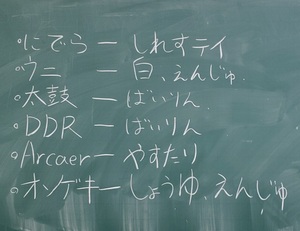 ○にでら ー しれすテイ
○ウニ ー 白、えんじゅ.
○太鼓 ー ばいりん.
○DDR ー ばいりん
○Arcaer ー やすたり
○オンゲキ ー しょうゆ、えんじゅ